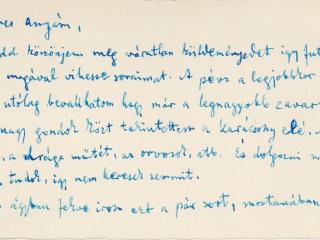 ves anyám,
dd köszönjem meg váratlan küldeményedet így fut
magával vihesse soraimat. A pénz a legjobbkor
utólag bevallhatom hogy már a legnagyobb zavar
nagy gondok közt tekintettem a karácsony elé.
a drága műtét, az orvosok, stb. És dolgozni n
tudok, így nem keresek semmit.
ágyban fekve irom ezt a pár sort, mostanában